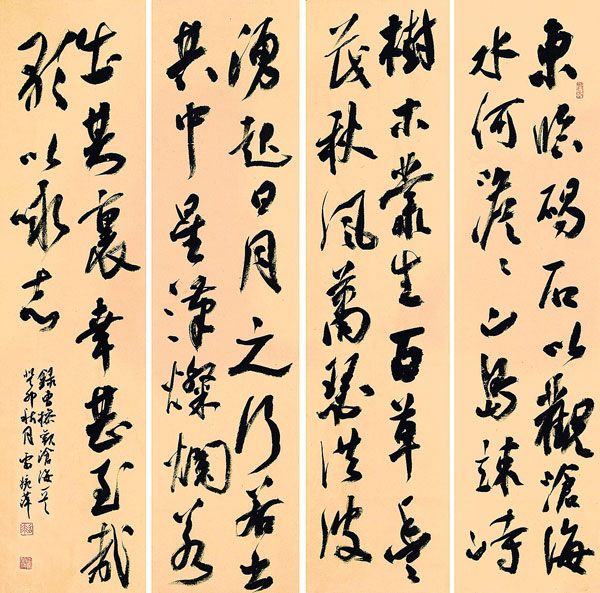 東臨碣石以觀滄海
水何澹〻山島竦峙
樹木叢生百草豐
茂秋風蕭瑟洪波
湧起日月之行若出
其中星漢燦爛若
出其裏幸甚至哉
歌以咏志
錄曹操觀滄海一首
癸卯秋月